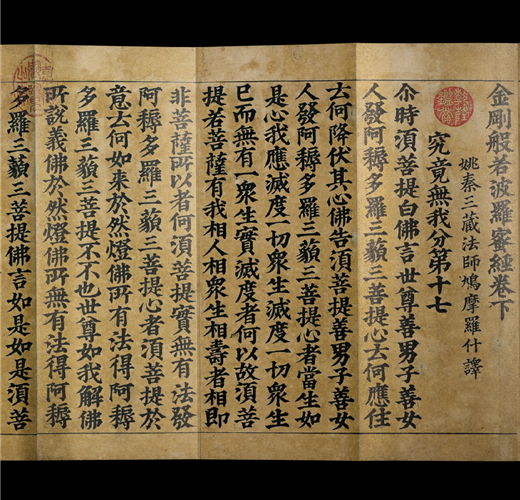 金剛般若波羅蜜經卷下
姚秦三藏法師鳩摩羅什譯
究竟無我分第十七
尒時須菩提白佛言世尊善男子善女
人發阿耨多羅三藐三菩提心云何應住
云何降伏其心佛告須菩提善男子善女
人發阿耨多羅三藐三菩提心者當生如
是心我應滅度一切衆生滅度一切衆生
已而無有一衆生實滅度者何以故須菩
提若菩薩有我相人相衆生相壽者相即
非菩薩所以者何須菩提實無有法發
阿耨多羅三藐三菩提心者須菩提於
意云何如來於然燈佛所有法得阿耨
多羅三藐三菩提不不也世尊如我解佛
所說義佛於然燈佛所無有法得阿耨
多羅三藐三菩提佛言如是如是須菩